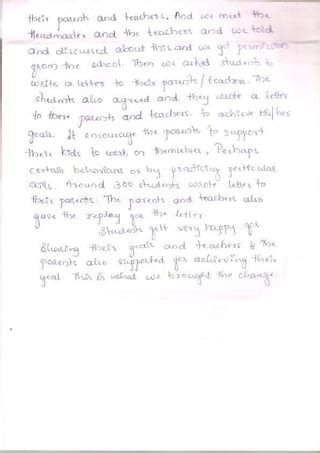 their parents and teachers. And we meet the
Headmaster and the teachers and we told
and discussed about this and we got permission
from the school. Then we asked students to
write a letter to their parents/teachers. The
students also agreed and they wrote a letter
to there parents and teachers. to achieve his/her
goals. It encourage the parents to support
their kids to work on themselves, Perhaps
certain behaviours or by practicing perticular
skills. Around 300 students wrote letter to
their parents. The parents and teachers also
gave the replay for the letter.
Students felt very happy for
Sharing their goals and teachers & the
parents also supported for achieving their
goal. This is what we brought the change.